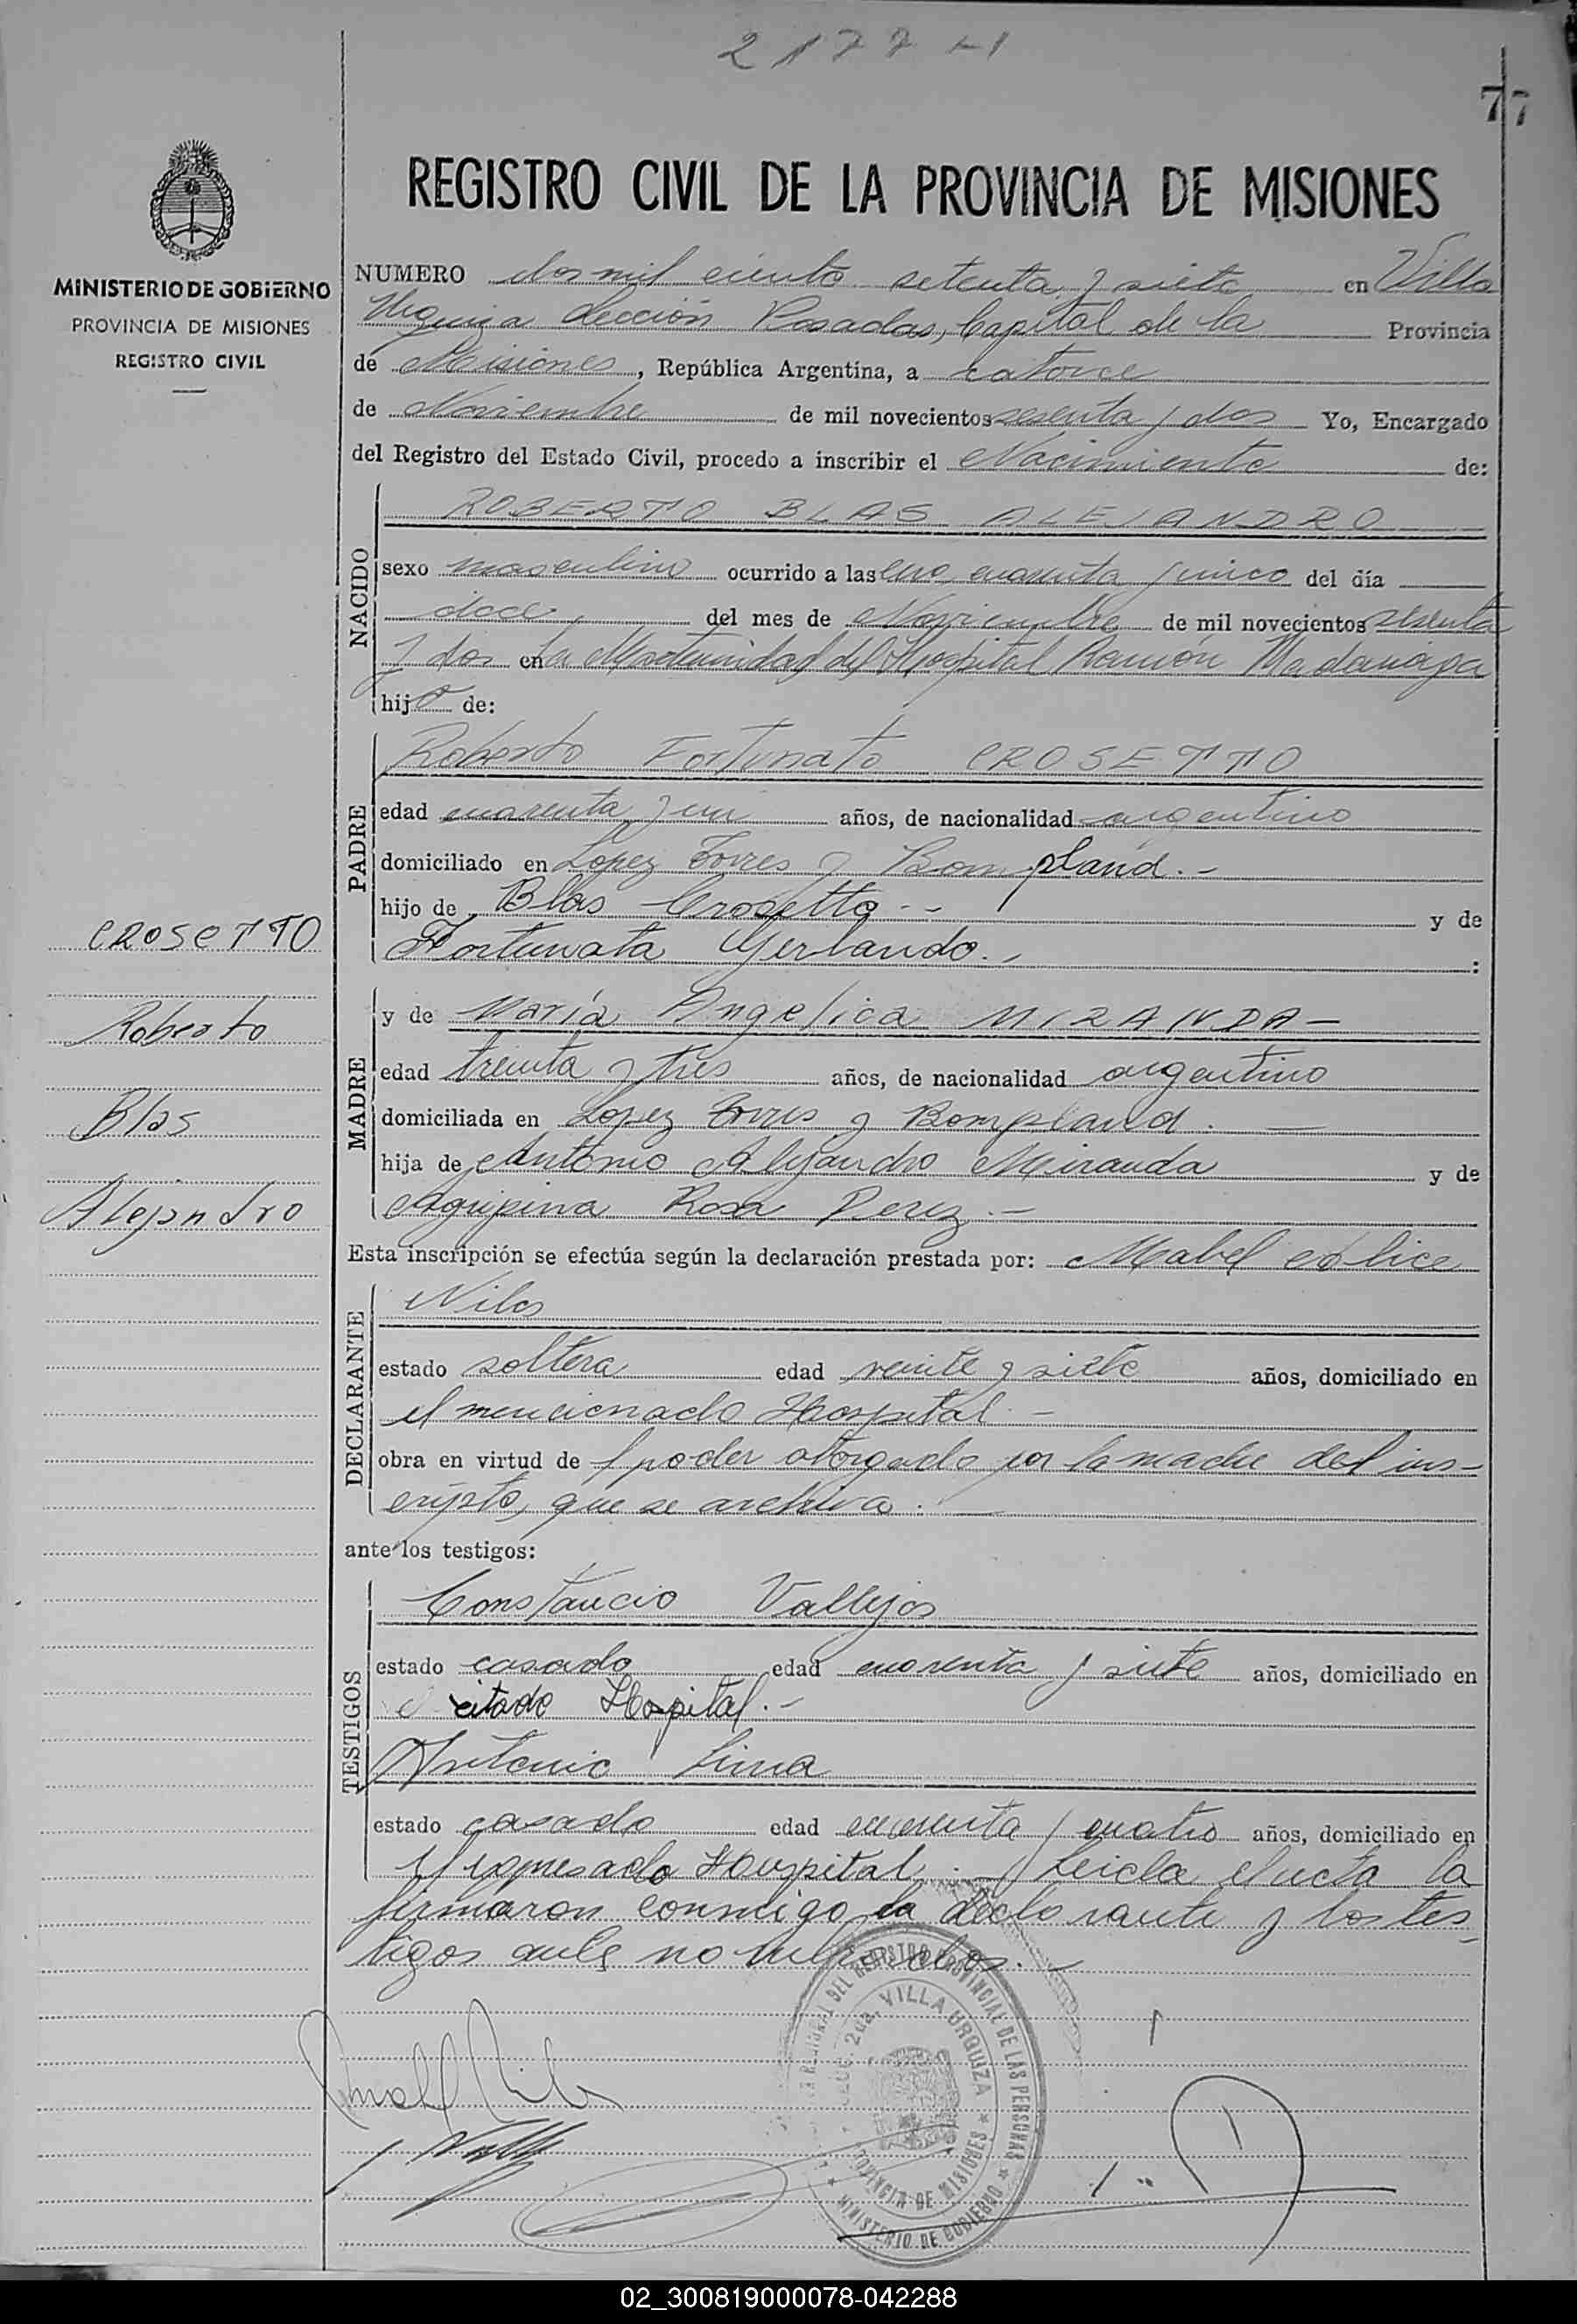 2177 H
77
REGISTRO CIVIL DE LA PROVINCIA DE MISIONES
MINISTERIO DE GOBIERNO
PROVINCIA DE MISIONES
REGISTRO CIVIL
NUMERO dos mil ciento setenta y siete en Villa
Urquiza Sección Posadas, Capital de la Provincia
de Misiones, República Argentina, a catorce
de Noviembre de mil novecientos sesenta y dos Yo, Encargado
del Registro del Estado Civil, procedo a inscribir el Nacimiento de:
NACIDO
ROBERTO BLAS ALEJANDRO
sexo masculino ocurrido a las uno, cuarenta y cinco del día
doce del mes de Noviembre de mil novecientos sesenta
y dos en La Maternidad del Hospital Ramón Madariaga
hijo de:
PADRE
Roberto Fortunato CROSETTO
edad cuarenta y un años, de nacionalidad argentino
domiciliado en Lopez Torres y Bompland.-
hijo de Blas Crosetto.- y de
Fortunata Gerlando.-
MADRE
y de María Angelica MIRANDA-
edad treinta y tres años, de nacionalidad argentino
domiciliada en Lopez Torres y Bompland.-
hija de Antonio Alejandro Miranda y de
Agripina Rosa Perez.-
CROSETTO
Roberto
Blas
Alejandro
Esta inscripción se efectúa según la declaración prestada por: Mabel Alice
DECLARANTE
Niles
estado soltera edad veinte y siete años, domiciliado en
el mencionado Hospital.-
obra en virtud de poder otorgado por la madre del ins-
cripto, que se archiva.-
ante los testigos:
TESTIGOS
Constancio Vallejos
estado casado edad cuarenta y siete años, domiciliado en
el citado Hospital.-
Antonio Lima
estado casado edad cuarenta y cuatro años, domiciliado en
el expresado Hospital.- Leida el acta la
firmaron conmigo la declarante y los tes-
tigos
REGISTRO PROVINCIAL DE LAS PERSONAS
2da. VILLA URQUIZA
PROVINCIA DE MISIONES
MINISTERIO DE GOBIERNO
02_300819000078-042288